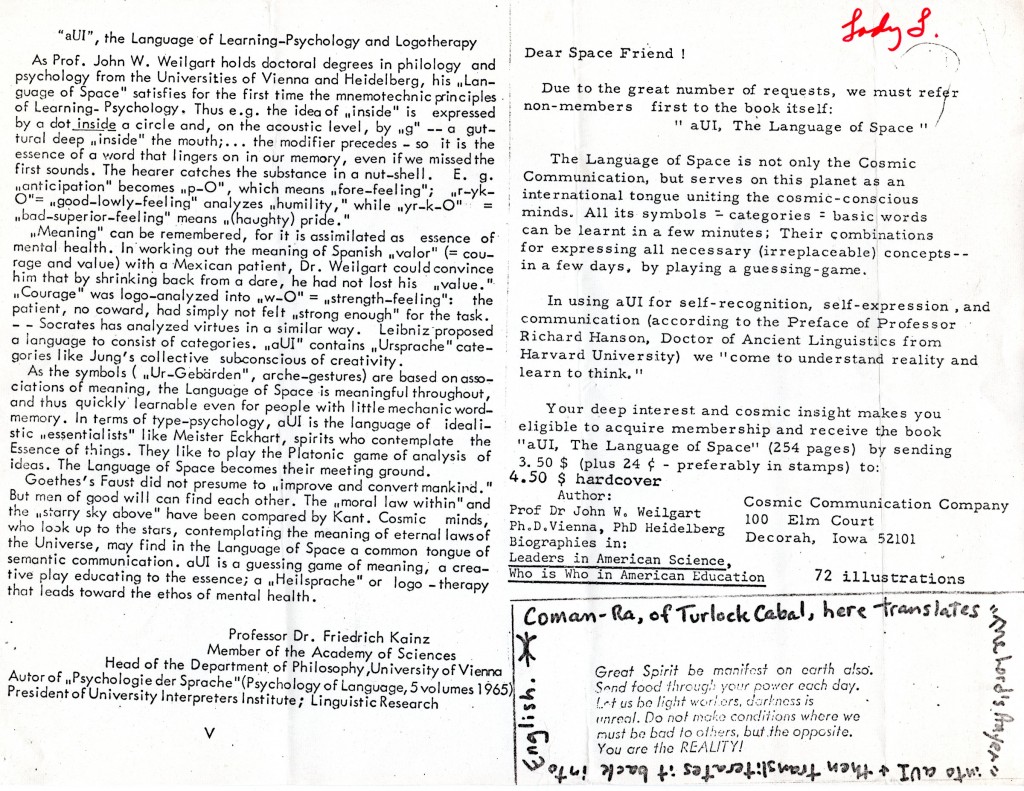 "aUI", the Language of Learning-Psychology and Logotherapy
As Prof. John W. Weilgart holds doctoral degrees in philology and
psychology from the Universities of Vienna and Heidelberg, his „Lan-
guage of Space" satisfies for the first time the mnemotechnic principles
of Learning- Psychology. Thus e.g. the idea of „inside" is expressed
by a dot inside a circle and, on the acoustic level, by „g" -- a gut-
tural deep „inside" the mouth;... the modifier precedes - so it is the
essence of a word that lingers on in our memory, even if we missed the
first sounds. The hearer catches the substance in a nut-shell. E. g.
„anticipation" becomes „p-O", which means „fore-feeling"; „r-yk-
O"= „good-lowly-feeling" analyzes „humility," while „yr-k-O" =
„bad-superior-feeling" means „(haughty) pride."
„Meaning" can be remembered, for it is assimilated as essence of
mental health. In working out the meaning of Spanish „valor" (= cou-
rage and value) with a Mexican patient, Dr. Weilgart could convince
him that by shrinking back from a dare, he had not lost his „value."
„Courage" was logo-analyzed into „w-O" = „strength-feeling": the
patient, no coward, had simply not felt „strong enough" for the task.
- - Socrates has analyzed virtues in a similar way. Leibniz proposed
a language to consist of categories. „aUI" contains „Ursprache" cate-
gories like Jung's collective subconscious of creativity.
As the symbols ( „Ur-Gebärden", arche-gestures) are based on asso-
ciations of meaning, the Language of Space is meaningful throughout,
and thus quickly learnable even for people with little mechanic word-
memory. In terms of type-psychology, aUI is the language of ideali-
stic „essentialists" like Meister Eckhart, spirits who contemplate the
Essence of things. They like to play the Platonic game of analysis of
ideas. The Language of Space becomes their meeting ground.
Goethes's Faust did not presume to „improve and convert mankind."
But men of good will can find each other. The „moral law within" and
the „starry sky above" have been compared by Kant. Cosmic minds,
who look up to the stars, contemplating the meaning of eternal laws of
the Universe, may find in the Language of Space a common tongue of
semantic communication. aUI is a guessing game of meaning, a crea-
tive play educating to the essence; a „Heilsprache" or logo -therapy
that leads toward the ethos of mental health.
Professor Dr. Friedrich Kainz
Member of the Academy of Sciences
Head of the Department of Philosophy,University of Vienna
Autor of „Psychologie der Sprache"(Psychology of Language, 5 volumes 1965)
President of University Interpreters Institute; Linguistic Research
V
Lady L.
Dear Space Friend !
Due to the great number of requests, we must refer
non-members first to the book itself:
" aUI, The Language of Space "
The Language of Space is not only the Cosmic
Communication, but serves on this planet as an
international tongue uniting the cosmic-conscious
minds. All its symbols = categories = basic words
can be learnt in a few minutes; Their combinations
for expressing all necessary (irreplaceable) concepts--
in a few days, by playing a guessing-game.
In using aUI for self-recognition, self-expression , and
communication (according to the Preface of Professor
Richard Hanson, Doctor of Ancient Linguistics from
Harvard University) we "come to understand reality and
learn to think."
Your deep interest and cosmic insight makes you
eligible to acquire membership and receive the book
"aUI, The Language of Space" (254 pages) by sending
3. 50 $ (plus 24 ¢ - preferably in stamps) to:
4.50 $ hardcover
Author:
Prof Dr John W. Weilgart
Ph.D.Vienna, PhD Heidelberg
Biographies in:
Leaders in American Science,
Who is Who in American Education
Cosmic Communication Company
100 Elm Court
Decorah, Iowa 52101
72 illustrations
Coman-Ra, of Turlock Cabal, here translates
"The Lord's Prayer"
into aUI + then transliterates it back into
English. *
Great Spirit be manifest on earth also.
Send food through your power each day.
Let us be light workers, darkness is
unreal. Do not make conditions where we
must be bad to others, but the opposite.
You are the REALITY!